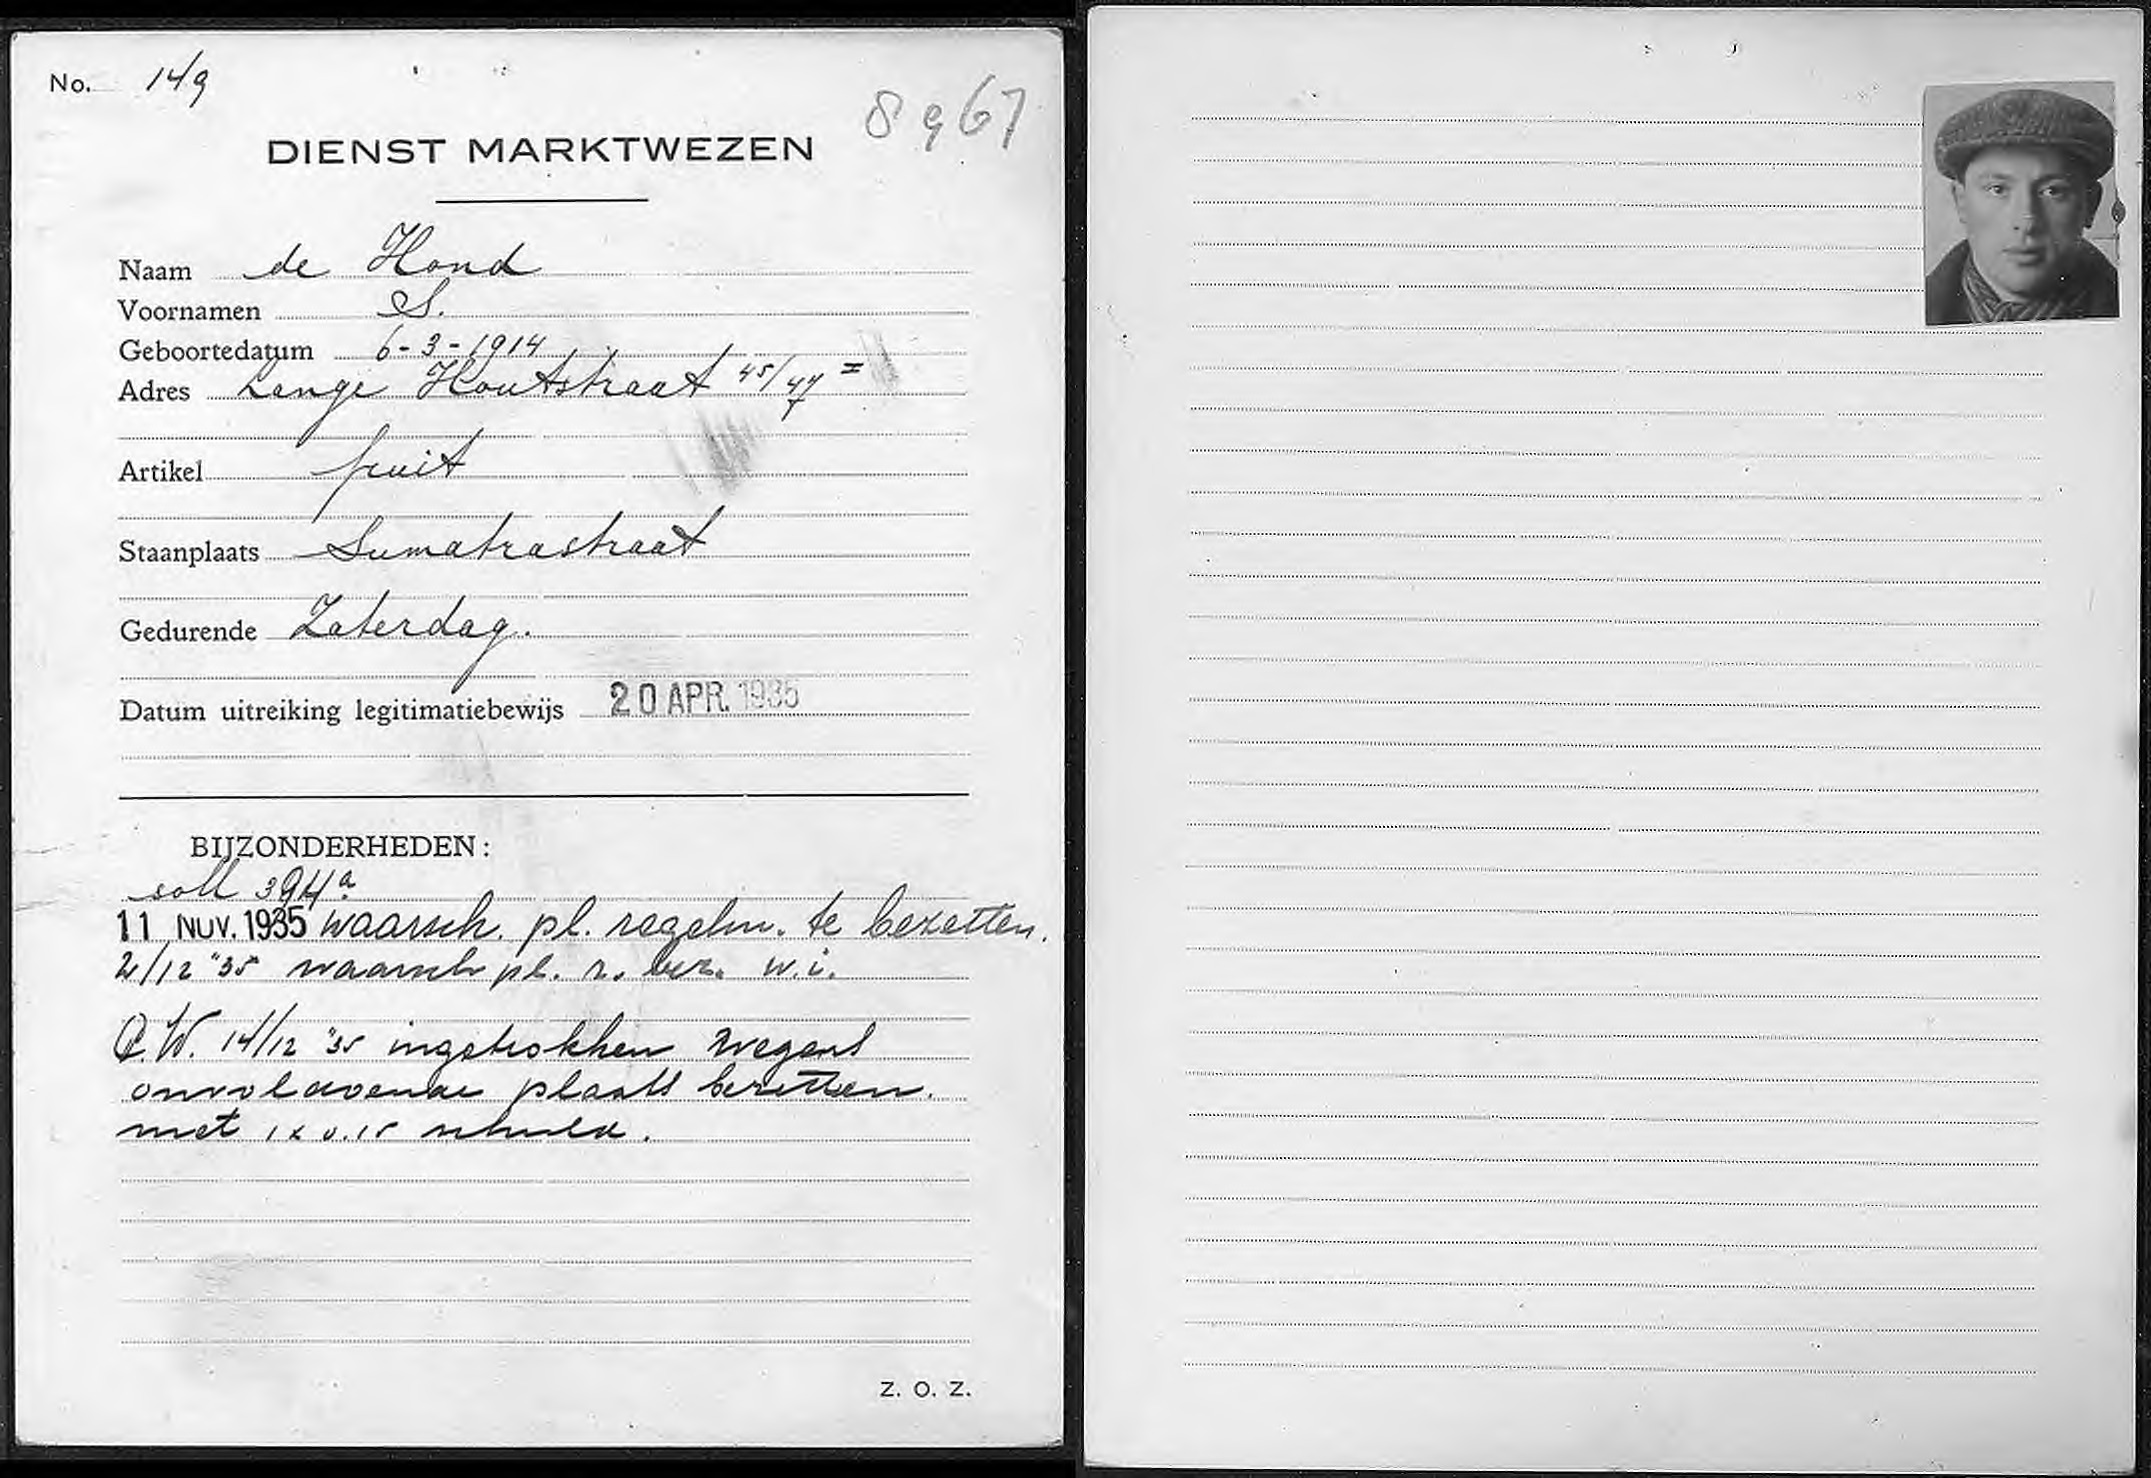 No. 149
8967
DIENST MARKTWEZEN
Naam de Hond
Voornamen S.
Geboortedatum 6-3-1914
Adres Lange Houtstraat 45/47 II
Artikel fruit
Staanplaats Sumatrastraat
Gedurende Zaterdag.
Datum uitreiking legitimatiebewijs 20 APR. 1935
BIJZONDERHEDEN:
soll 394a
11 NOV. 1935 waarsch. pl. regelm. te bezetten.
2/12 "35 waarsch pl. r. bez. w.i.
B.W. 14/12 "35 ingetrokken wegens
onvoldoende plaats bezetten.
met 1 x 0.15 schuld.
Z. O. Z.